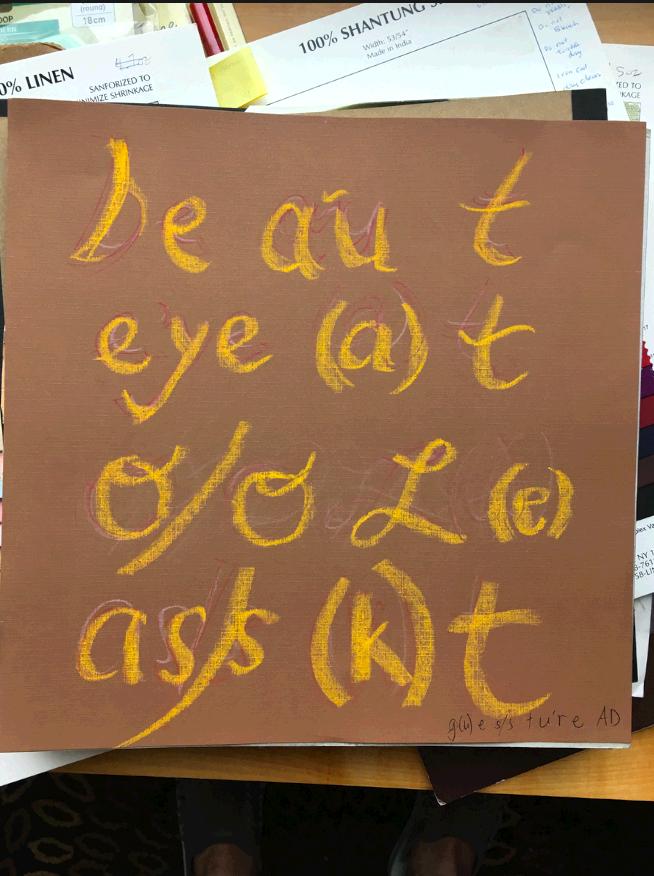 (round)
18cm
100% SHANTUNG
Width: 53/54"
Made in India
0% LINEN
SANFORIZED TO
NIMIZE SHRINKAGE
be au t
eye (a) t
O/O L (e)
as/s (k) t
g(u) e s/s tu're AD